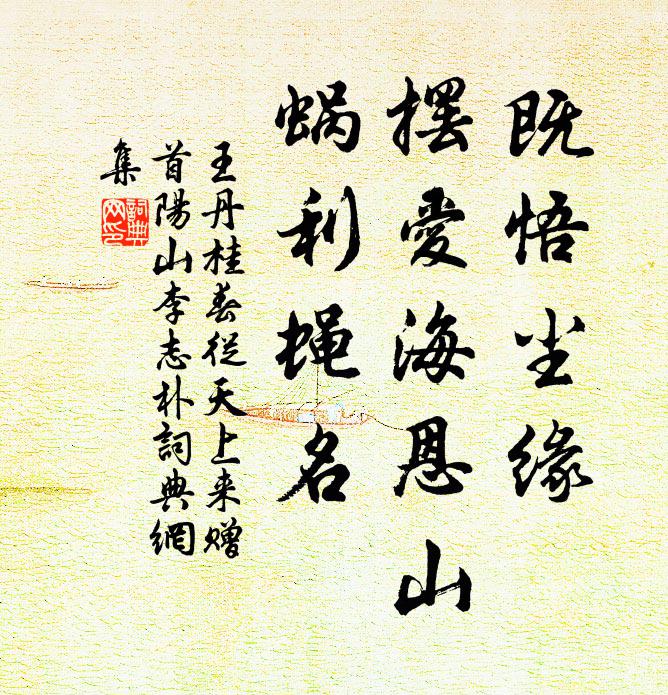 既悟尘缘
摆爱海恩山
蜗利蝇名
王丹桂春從天上来赠
首陽山李志朴詞典網
集
詞典網印